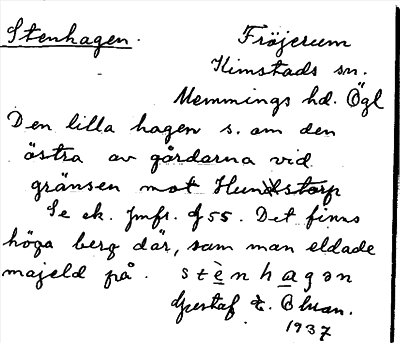 Stenhagen.
Fröjerum
Kimstads sn.
Memmings hd. Ögl
Den lilla hagen s. om den
östra av gårdarna vid
gränsen mot Hundstorp
Se ek. jmfr. f 55. Det finns
höga berg där, som man eldade
majeld på. stènhagən
Gustaf E. Olsson.
1937